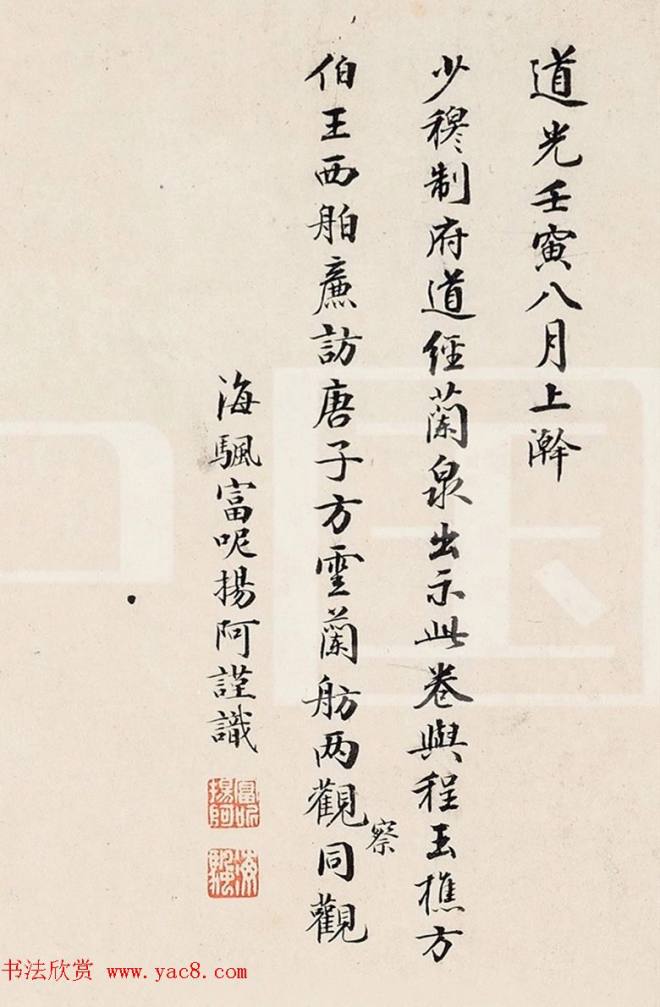 道光壬寅八月上澣
少穆制府道經蘭泉出示此卷與程玉樵方
伯王西舶廉訪唐子方雲蘭舫两觀察同觀
海颿富呢揚阿謹識
富呢揚阿
海颿
书法欣赏 www.yac8.com